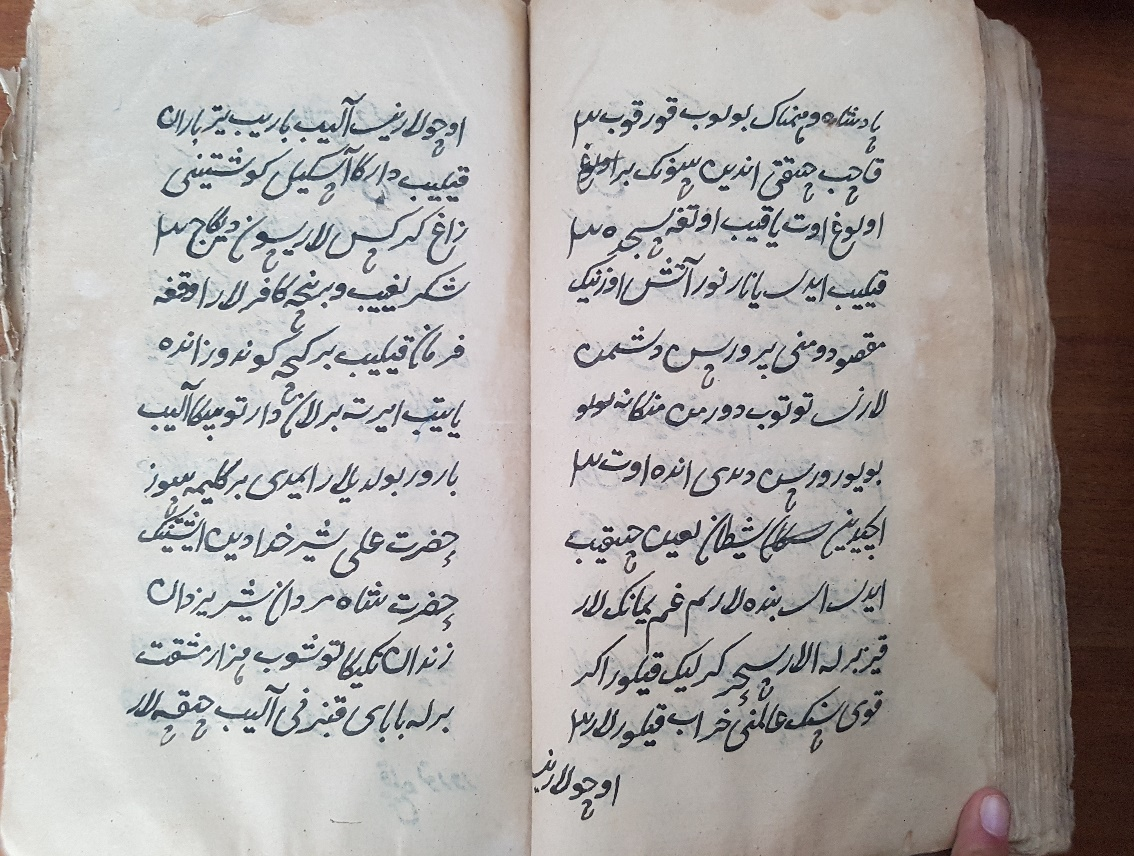 پادشاه وهمناک بولوب قورقوب ۳
قاچب چیقتی اندین سونک بر اولوغ
اولوغ اوت یاقیب اوتقه سجده ۳
قیلیب ایدی یا نار نور آتش اوزنیک
مقصودومنی پرورس دشمن
لارنی توتوب دورمن منکا نه
بویورورس دیدی انده اوت ۳
ایچیدین شیطان لعین چیقیب
ایدی ای بنده لاریم غم یمانک لار
قیز برله الار سحرکرلیک قیلور اکر
قوی سنک عالمنی خراب قیلورلار ۳
اوچولارنی
اوچولارنی آلیب باریب تیر باران
قیلیب دارکا آسکیل کوشتینی
زاغ کرکس لار یسون دیکاج ۳
شکر لغیب و برنچه کافرلار اوقغه
فرمان قیلیب بر کیچه کوندوز انده
یاتیب ایرته برلان دار توبیکا آلیب
بارور بولدیلار ایمدی بر کلیمه سوز
حضرت علی شیر خدادین ایشیتینک
حضرت شاه مردان شیر یزدان
زندان تکیکا توشوب هزار مشقت
برله بابای قنبرنی آلیب چیقه لار